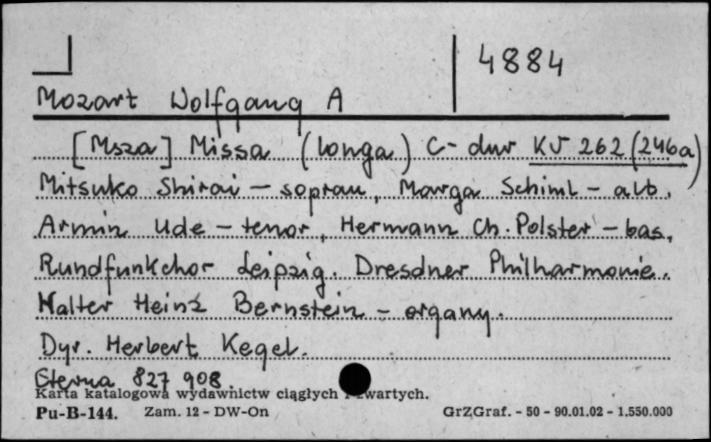 4884
Mozart Wolfgang A
[Msza] Missa (longa) C-dur KV 262 (246a)
Mitsuko Shirai – sopran, Marga Schiml – alt,
Armin Ude – tenor, Hermann Ch. Polster – bas,
Rundfunkchor Leipzig. Dresdner Philharmonie.
Walter Heinz Bernstein – organy.
Dyr. Herbert Kegel.
Eterna 827 908.
Karta katalogowa wydawnictw ciągłych i zwartych.
Pu-B-144. Zam. 12 - DW-On GrZGraf. - 50 - 90.01.02 - 1.550.000